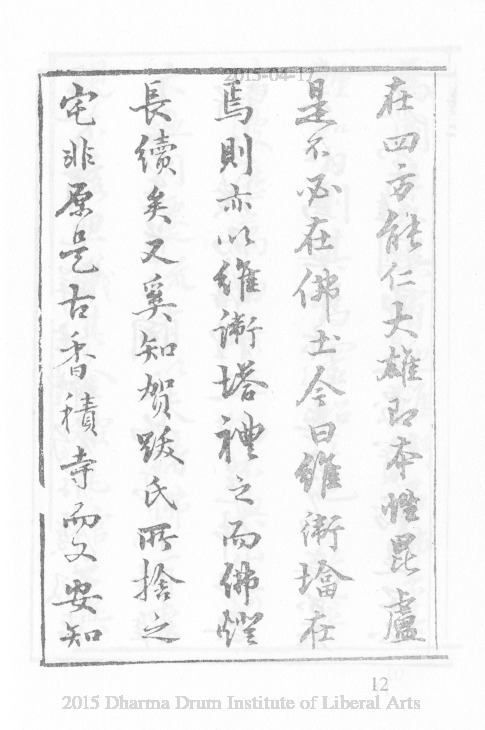 2015-04-17
在四方能仁大雄即本性毘盧
是不必在佛土今日維衛塔在
焉則亦以維衛塔禮之而佛燈
長續矣又奚知賀跋氏所捨之
宅非原是古香積寺而又安知
12
2015 Dharma Drum Institute of Liberal Arts